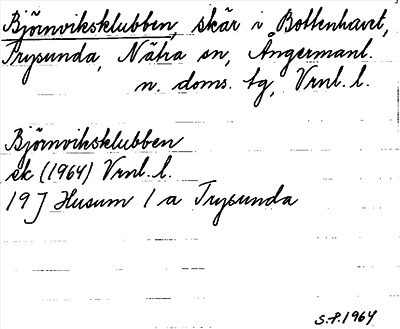 Björnviksklubben, skär i Bottenhavet,
Trysunda, Nätra sn, Ångermanl.
n. doms. tg, Vrnl. l.
Björnviksklubben
sk (1964) Vrnl. l.
19 J Husum 1 a Trysunda
S.P. 1964